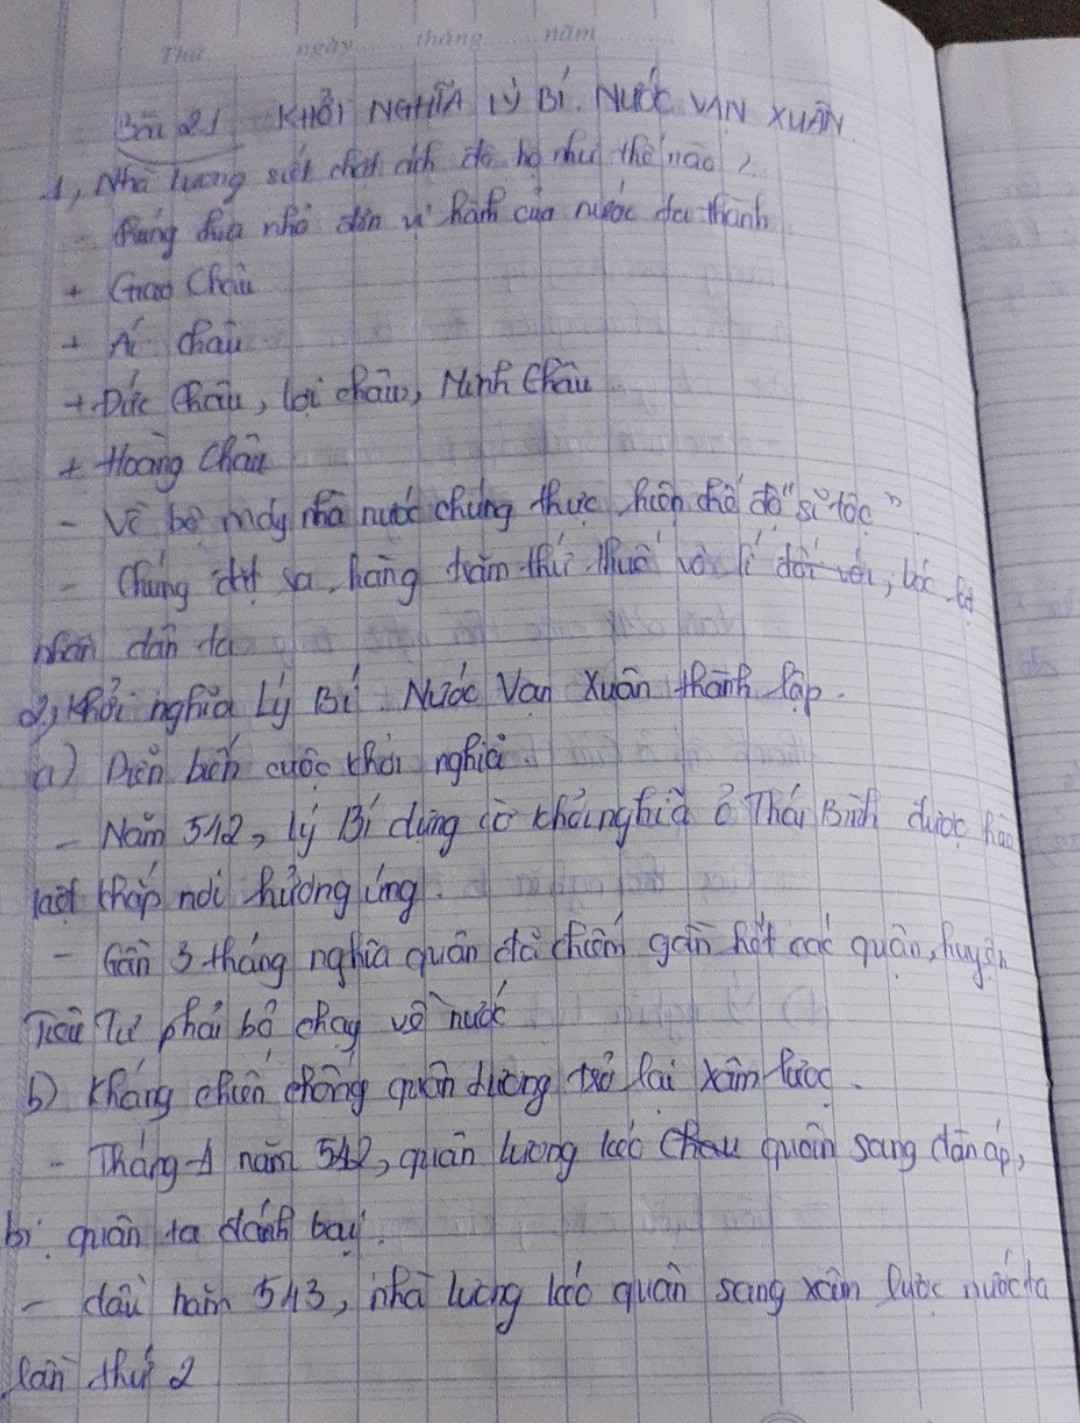 Thứ ngày tháng năm
Bài 21 KHỞI NGHĨA LÝ BÍ. NƯỚC VẠN XUÂN
1, Nhà lương siết chặt ách đô hộ như thế nào?
- Chúng chia nhỏ đơn vị hành của nước ta thành
+ Giao Châu
+ Ái châu
+ Đức Châu, lợi châu, Minh Châu
+ Hoàng Châu
- Về bộ máy nhà nước chúng thực hiện chế độ "sĩ tộc"
- Chúng đặt ra hàng trăm thứ thuế vô lí đối với, bóc lột
nhân dân ta
2, Khởi nghĩa Lý Bí. Nước Vạn Xuân thành lập.
a) Diễn biến cuộc khởi nghĩa.
- Năm 542, lý Bí dựng cờ khởi nghĩa ở Thái Bình được hào
kiệt khắp nơi hưởng ứng.
- Gần 3 tháng nghĩa quân đã chiếm gần hết các quận, huyện
Tiêu Tư phải bỏ chạy về nước
b) Kháng chiến chống quân lương trở lại xâm lược.
- Tháng 4 năm 542, quân lương kéo Châu quân sang đàn áp,
bị quân ta đánh bại.
- đầu năm 543, nhà lương kéo quân sang xâm lược nước ta
lần thứ 2